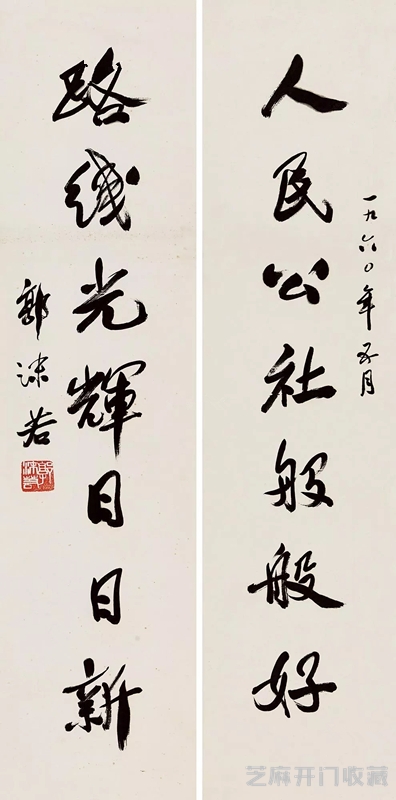 一九六〇年五月
人民公社般般好
路线光輝日日新
郭沫若
郭沫若
芝麻开门收藏